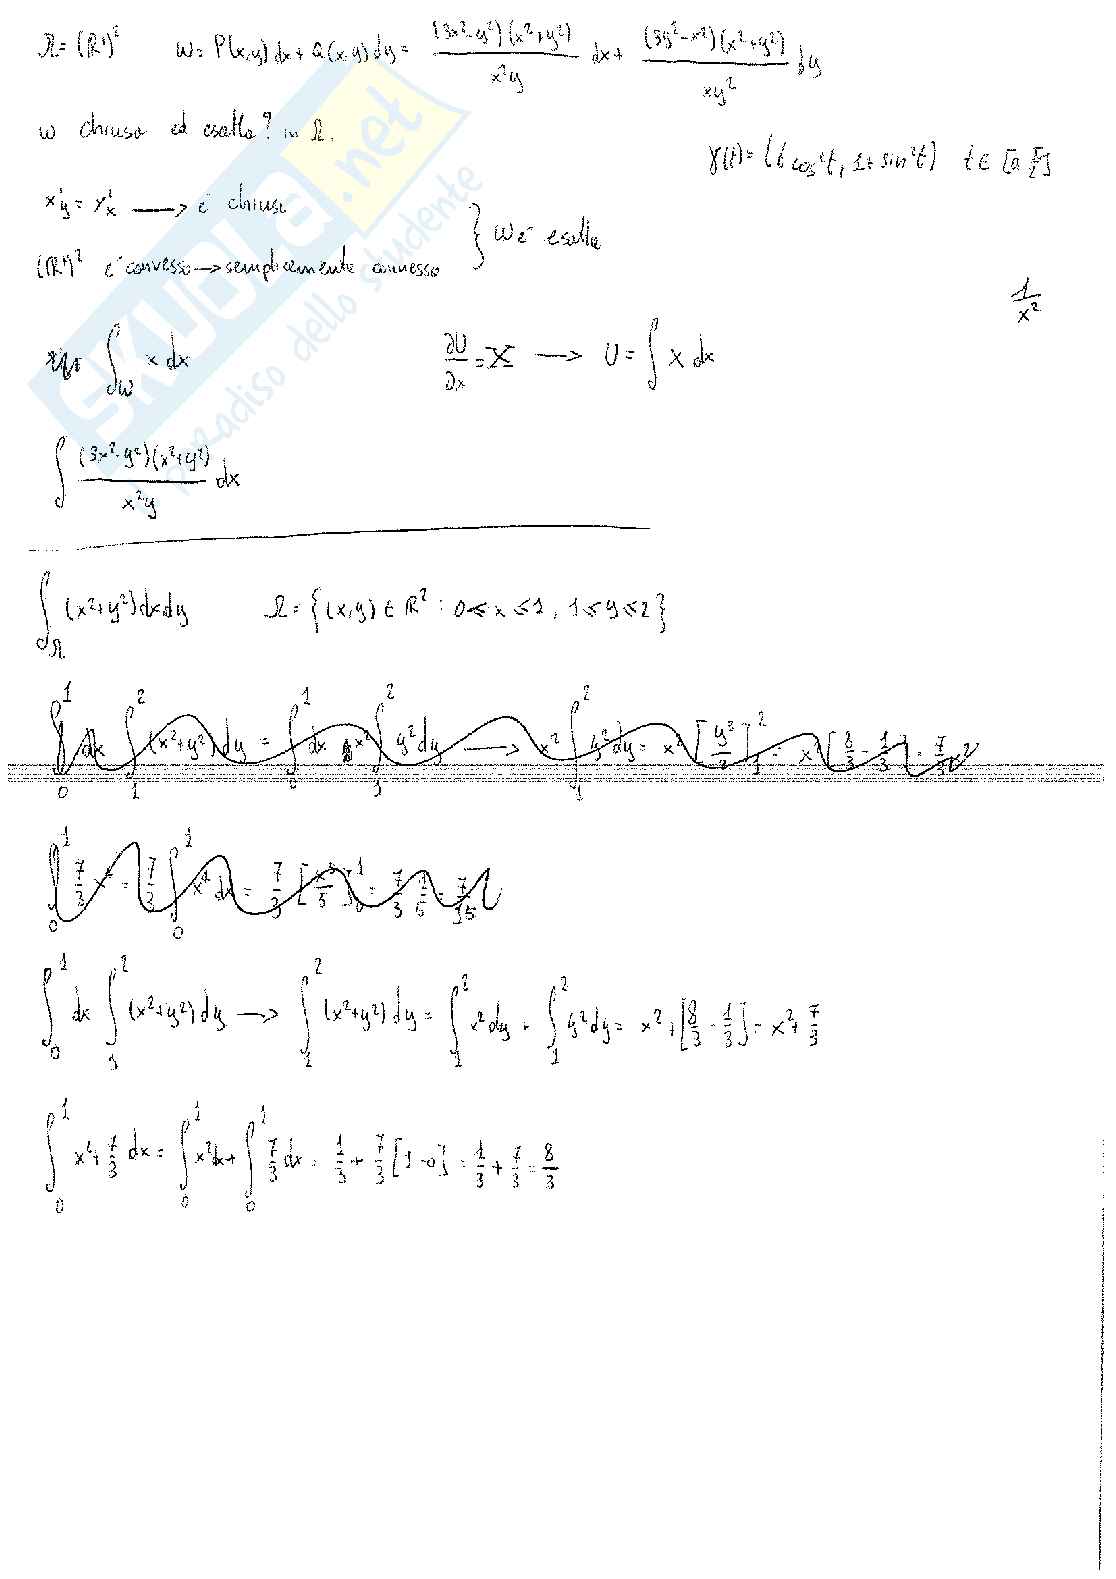 Ω = (R⁺)² ω = P(x,y)dx + Q(x,y)dy = (3x²-y²)(x²+y²)/x²y dx + (3y²-x²)(x²+y²)/xy² dy
ω chiusa ed esatta? in Ω.
γ(t) = (t cos²t, 1+sin²t) t ∈
x'y = y'x → è chiusa
(R⁺)² è convesso → semplicemente connesso } ω è esatta
1/x²
∫ω x dx ∂U/∂x = X → U = ∫ X dx
∫ (3x²-y²)(x²+y²)/x²y dx
∫Ω (x²+y²)dxdy Ω = {(x,y) ∈ R² : 0 ≤ x ≤ 1, 1 ≤ y ≤ 2}
∫₀¹ dx ∫₁² (x²+y²) dy = ∫₀¹ dx x² ∫₁² y² dy → x² ∫₁² y² dy = x² [y³/3]₁² = x² [8/3 - 1/3] = 7/3 x²
∫₀¹ 7/3 x² = 7/3 ∫₀¹ x⁴ dx = 7/3 [x⁵/5]₀¹ = 7/3 1/5 = 7/15
∫₀¹ dx ∫₁² (x²+y²) dy → ∫₁² (x²+y²) dy = ∫₁² x² dy + ∫₁² y² dy = x² + [8/3 - 1/3] = x² + 7/3
∫₀¹ x² + 7/3 dx = ∫₀¹ x² dx + ∫₀¹ 7/3 dx = 1/3 + 7/3 [1-0] = 1/3 + 7/3 = 8/3
SKUOLA.net
paradiso dello studente